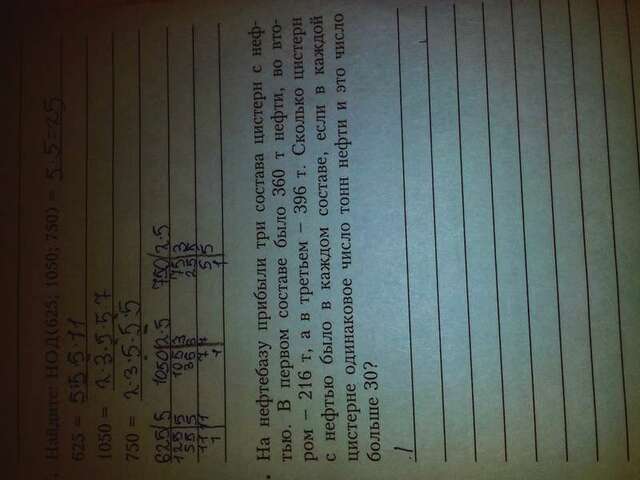 Найдите: НОД(625; 1050; 750) = 5·5=25
625 = 5·5·5·11
1050 = 2·3·5·5·7
750 = 2·3·5·5·5
625|5 1050|2·5 750|2·5
125|5 105|3 75|3
55|5 35|5 25|5
11|11 7|7 5|5
1| 1| 1|
На нефтебазу прибыли три состава цистерн с неф-
тью. В первом составе было 360 т нефти, во вто-
ром – 216 т, а в третьем – 396 т. Сколько цистерн
с нефтью было в каждом составе, если в каждой
цистерне одинаковое число тонн нефти и это число
больше 30?